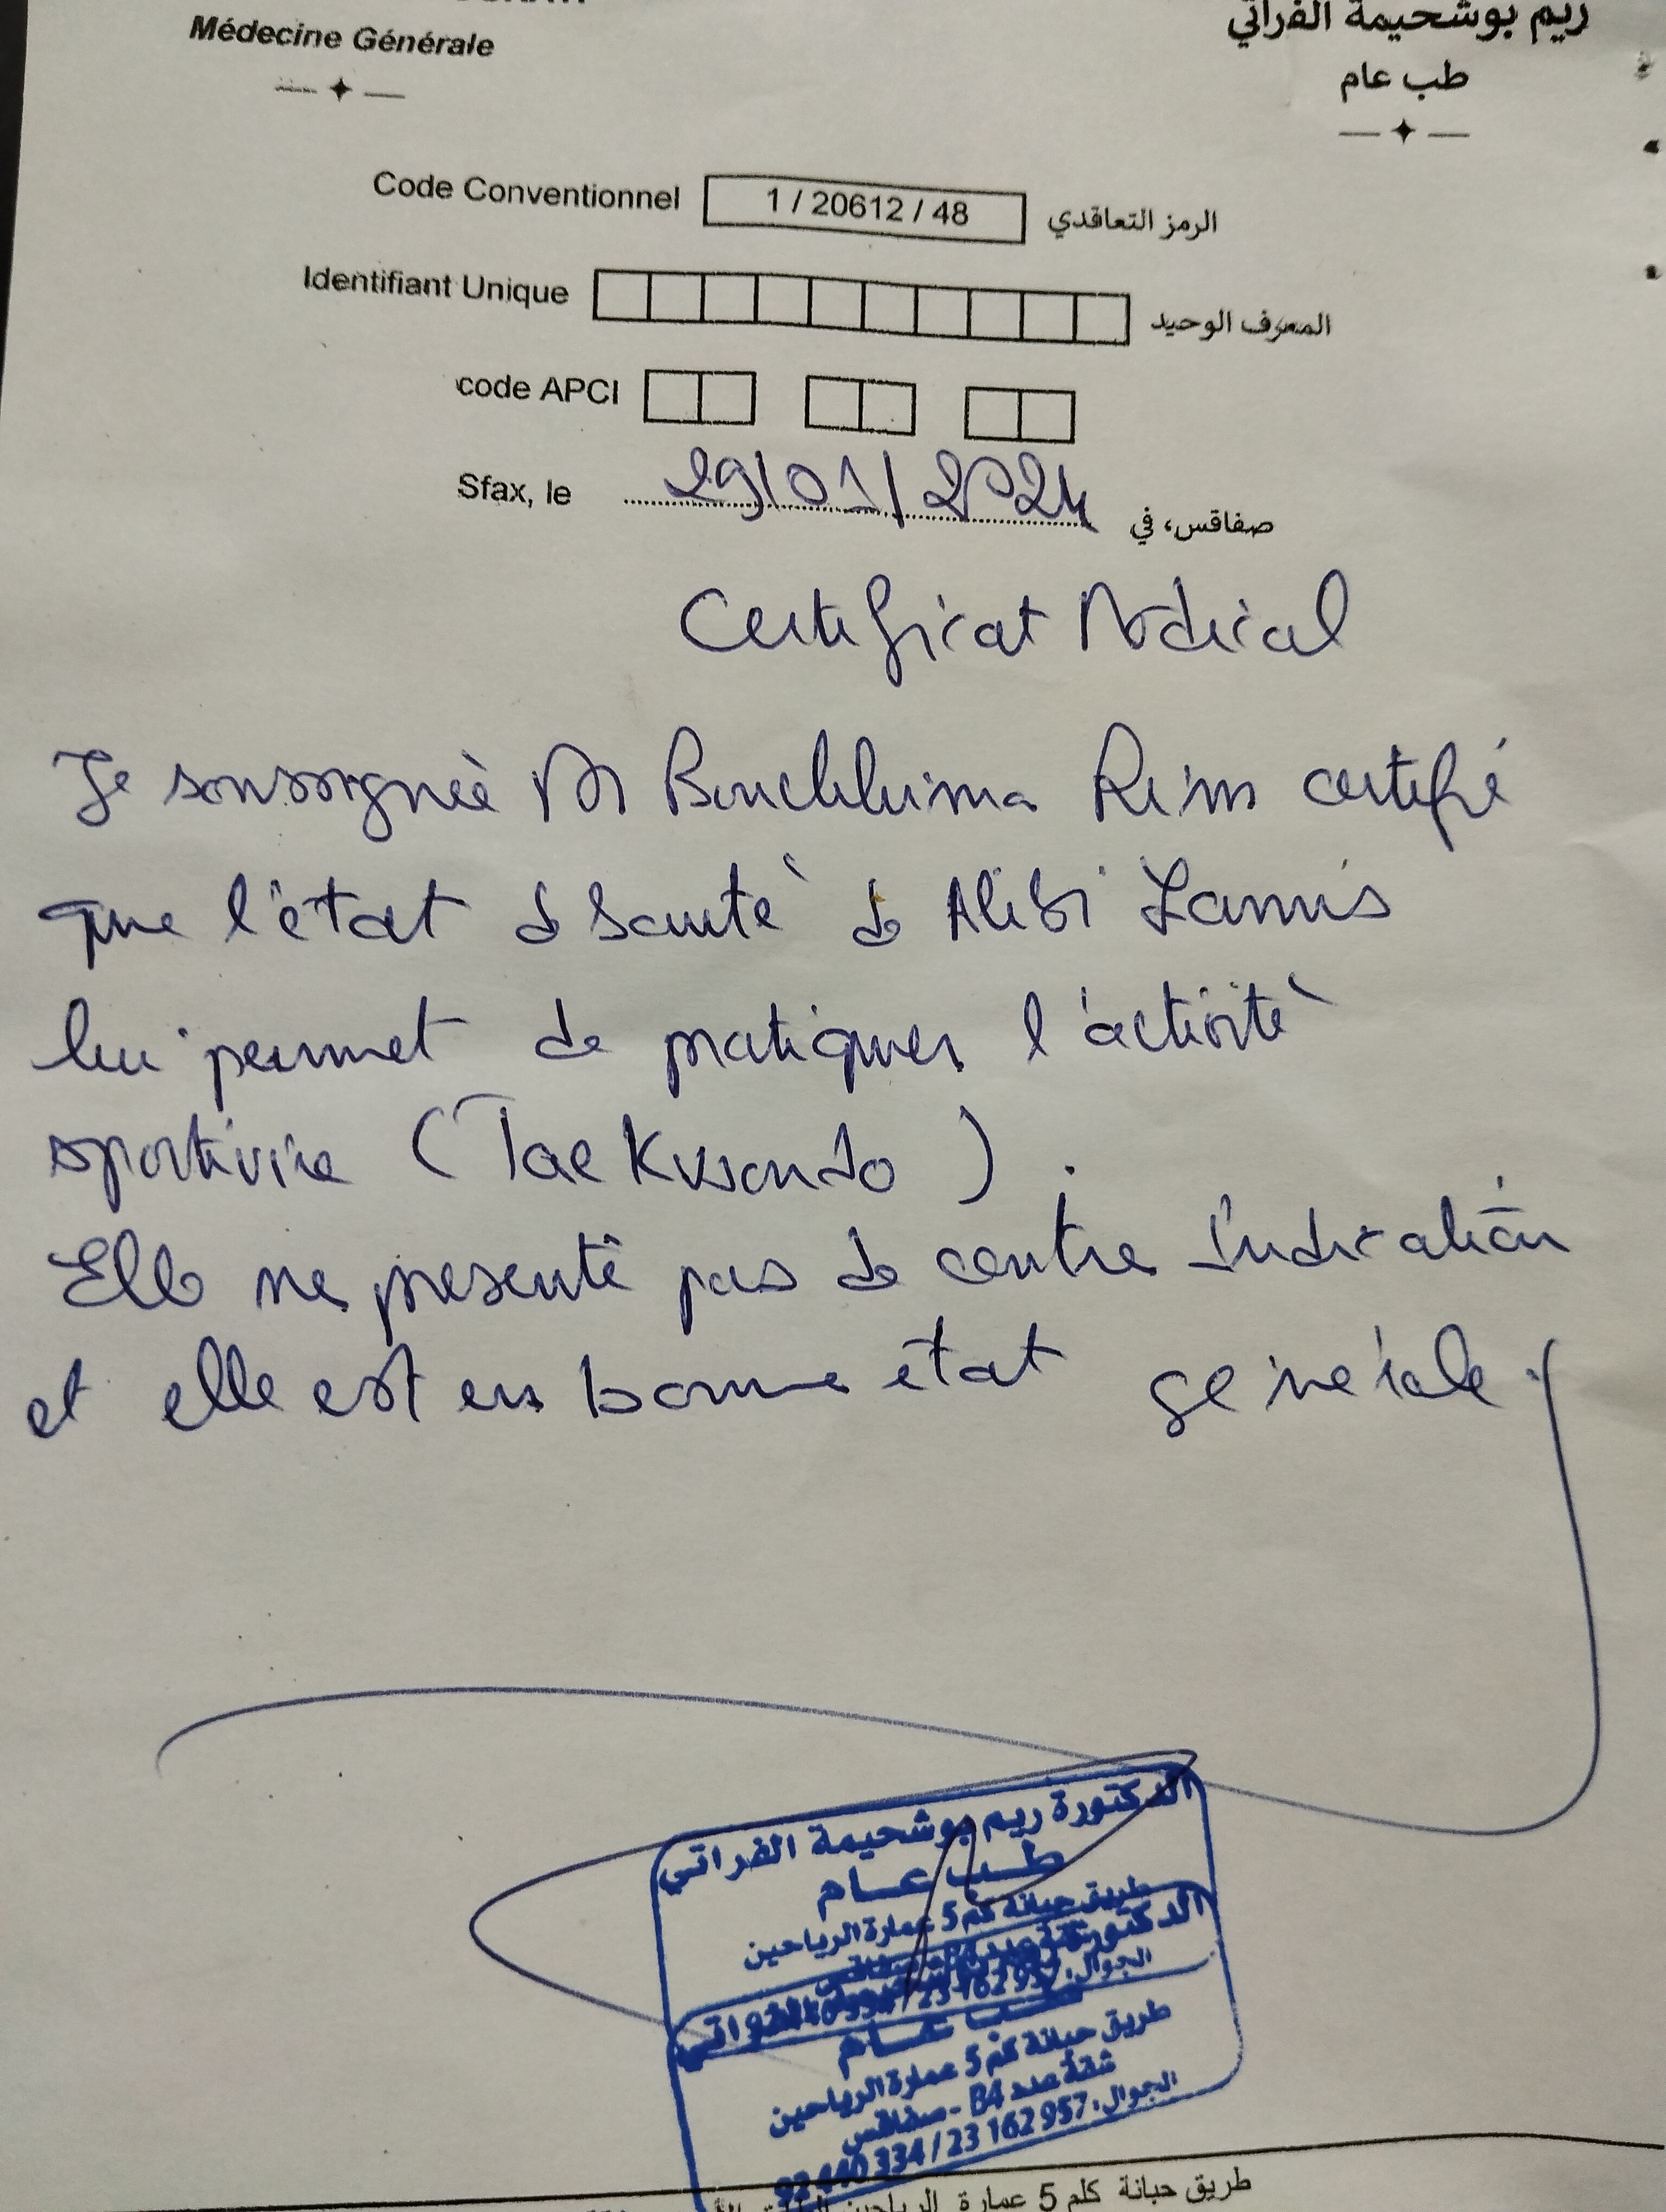 Médecine Générale
ريم بوشحيمة الفراتي
طب عام
Code Conventionnel 1 / 20612 / 48 الرمز التعاقدي
Identifiant Unique المعرف الوحيد
code APCI
Sfax, le 29/01/2024 صفاقس، في
Certificat Médical
Je soussignée Dr Bouchhima Reim certifié
que l'état de santé de Alibi Lamis
lui permet de pratiquer l'activité
sportivie (Taekwondo).
Elle ne présente pas de contre indication
et elle est en bonne état générale.
الدكتورة ريم بوشحيمة الفراتي
طب عام
طريق حبانة كم 5 عمارة الرياحين
الجوال: 23 162 957
طب عام
طريق حبانة كم 5 عمارة الرياحين
شقة عدد B4 - صفاقس
الجوال: 23 162 957 / 334
طريق حبانة كلم 5 عمارة الرياحين